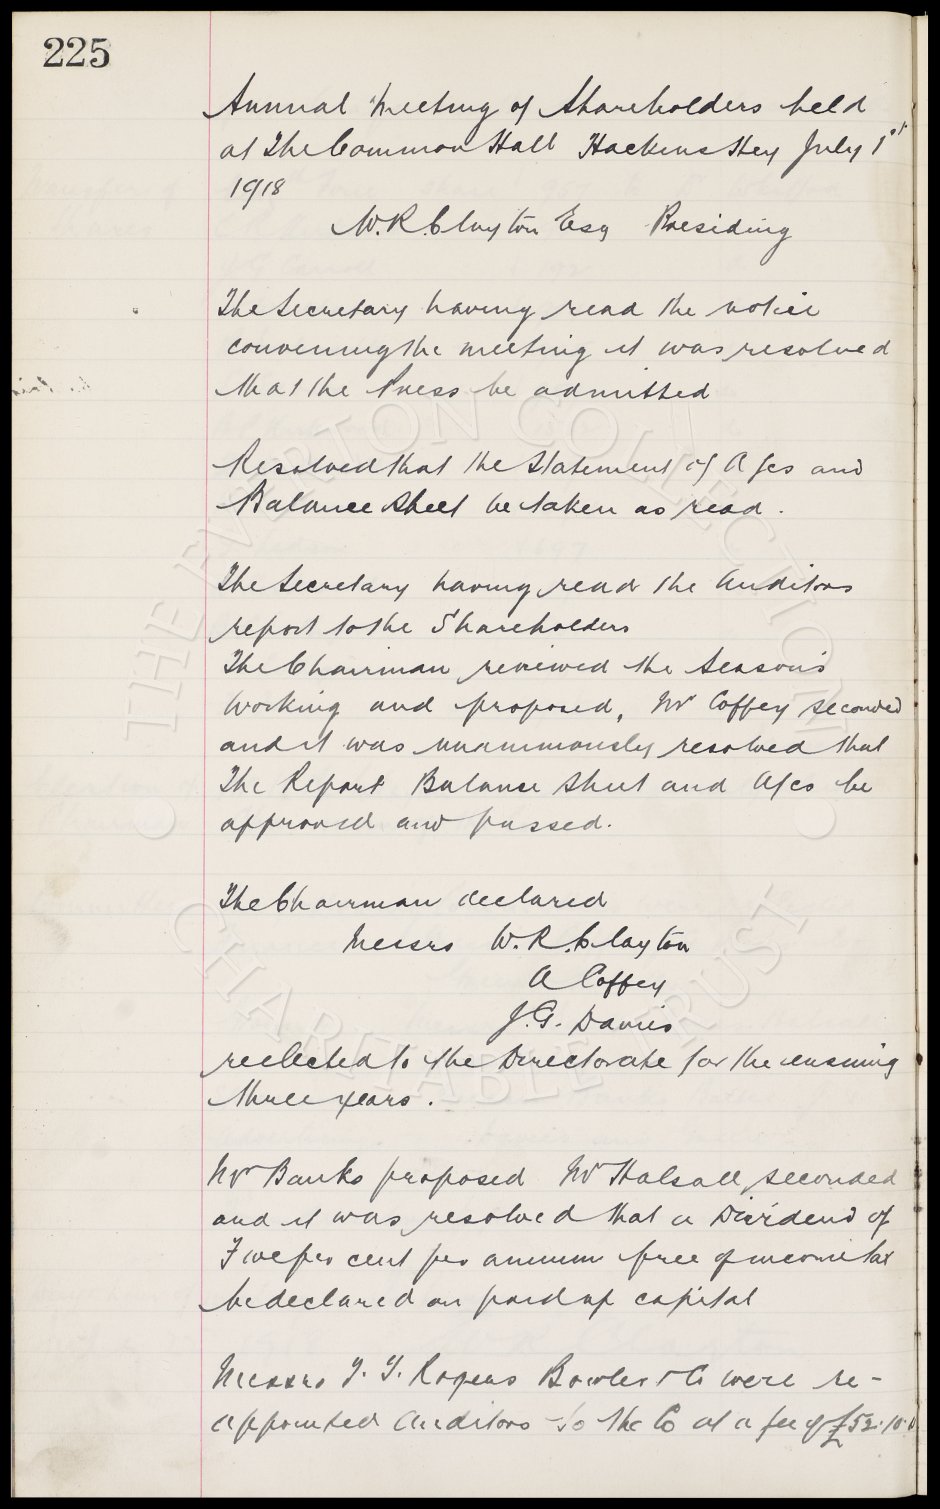 225
Annual Meeting of Shareholders held
at The Common Hall Hackins Hey July 1st
1918
W.R. Clayton Esq Presiding
The Secretary having read the notice
convening the meeting it was resolved
that the Press be admitted
Resolved that the Statement of A/cs and
Balance Sheet be taken as read.
The Secretary having read the Auditors
report to the Shareholders
The Chairman reviewed the Season's
working and proposed, Mr Coffey seconded
and it was unanimously resolved that
The Report Balance Sheet and A/cs be
approved and passed.
The Chairman declared
Messrs W.R. Clayton
A Coffey
J.G. Davies
reelected to the Directorate for the ensuing
three years.
Mr Banks proposed Mr Halsall seconded
and it was resolved that a Dividend of
Five per cent per annum free of income tax
be declared on paid up capital
Messrs T. T. Rogers Bowler & Co were re-
appointed Auditors to the Co at a fee of £52.10.0
THE EVERTON COLLECTION
CHARITABLE TRUST